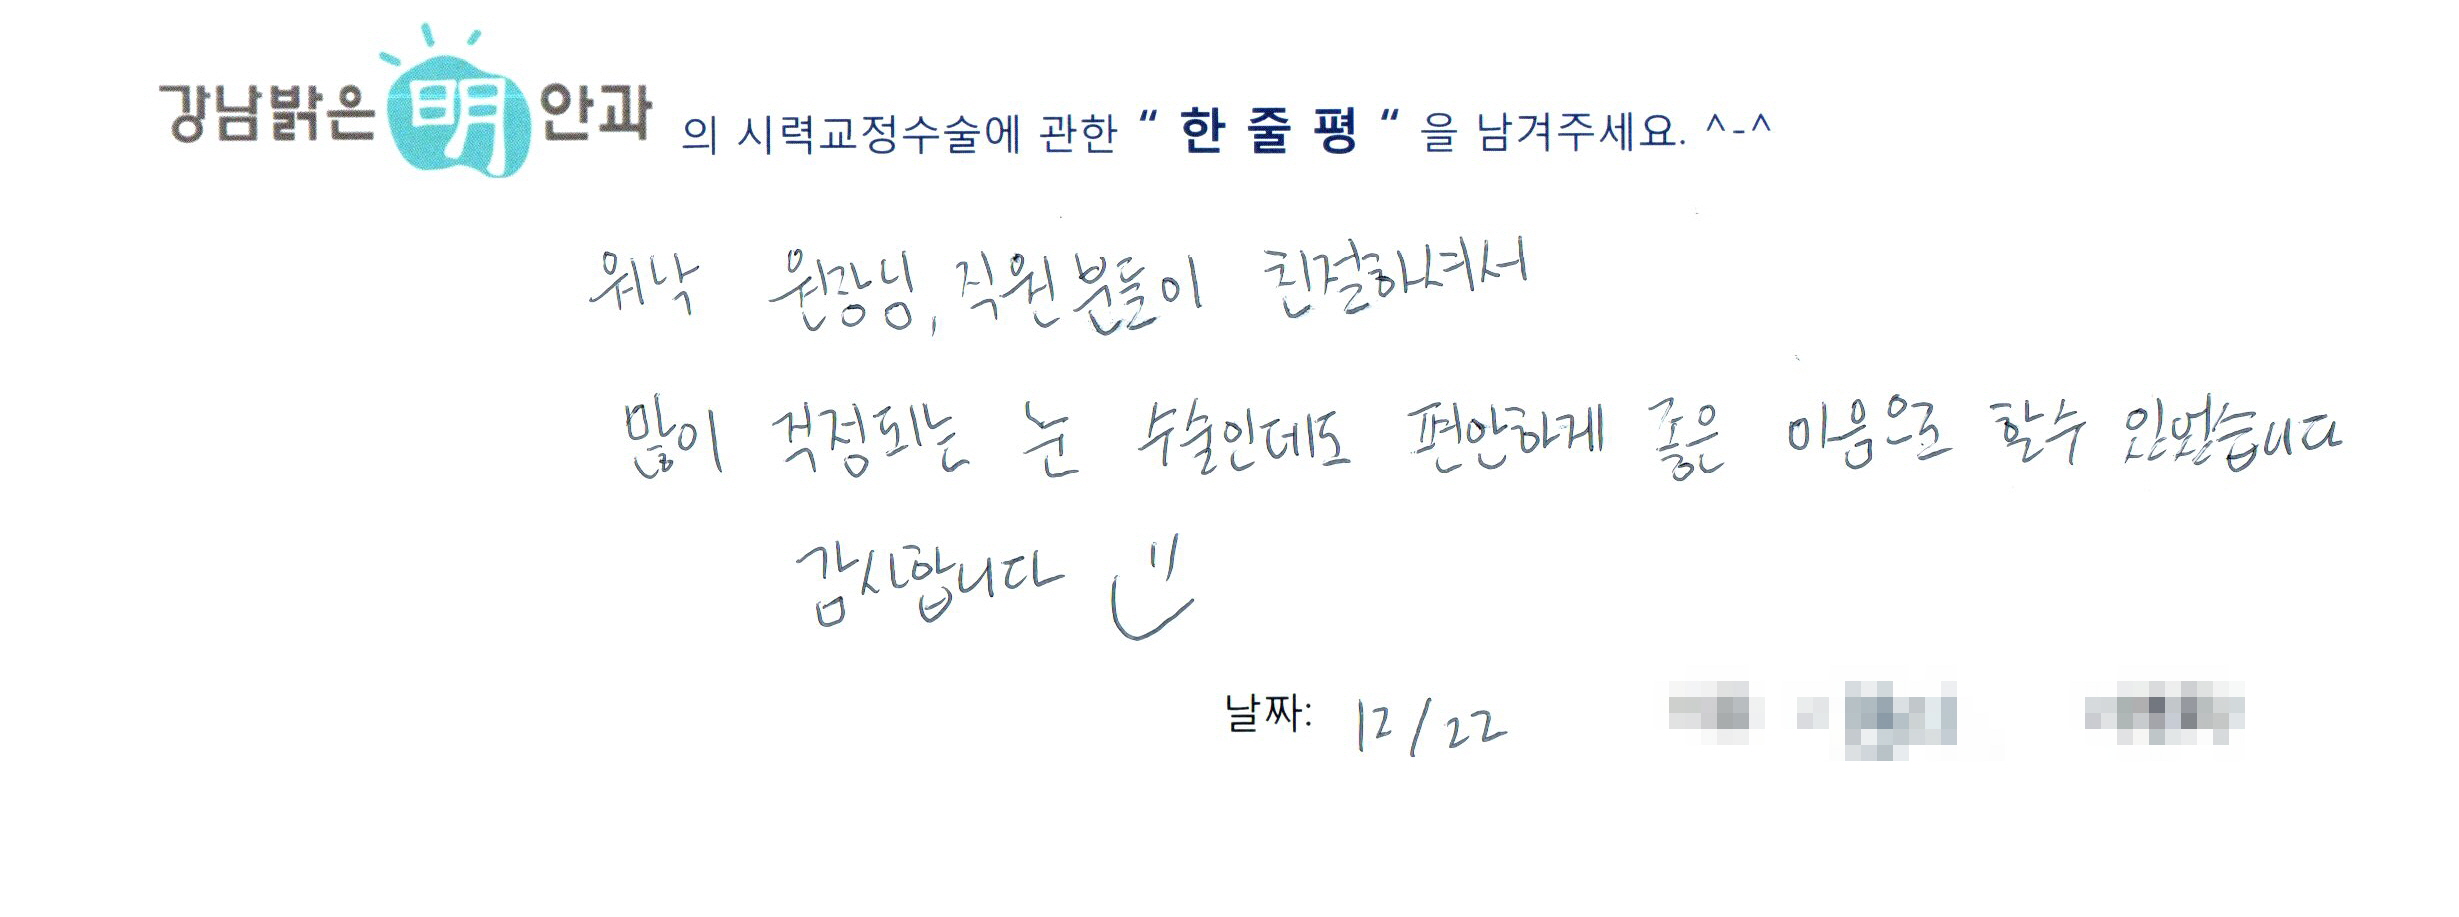 강남밝은 明 안과 의 시력교정수술에 관한 “ 한 줄 평 “ 을 남겨주세요. ^-^
워낙 원장님, 직원분들이 친절하셔서
많이 걱정되는 눈 수술인데도 편안하게 좋은 마음으로 할수 있었습니다
감사합니다
날짜: 12/22